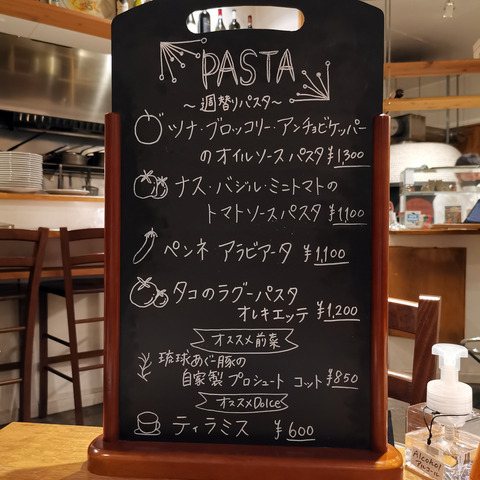 PASTA
～週替りパスタ～
ツナ・ブロッコリー・アンチョビケッパー
のオイルソースパスタ ¥1300
ナス・バジル・ミニトマトの
トマトソースパスタ ¥1,100
ペンネ アラビアータ ¥1,100
タコのラグーパスタ
オレキエッテ ¥1,200
オススメ前菜
琉球あぐー豚の
自家製 プロシュート コット ¥850
オススメDolce
ティラミス ¥600
Alcohol
アルコール